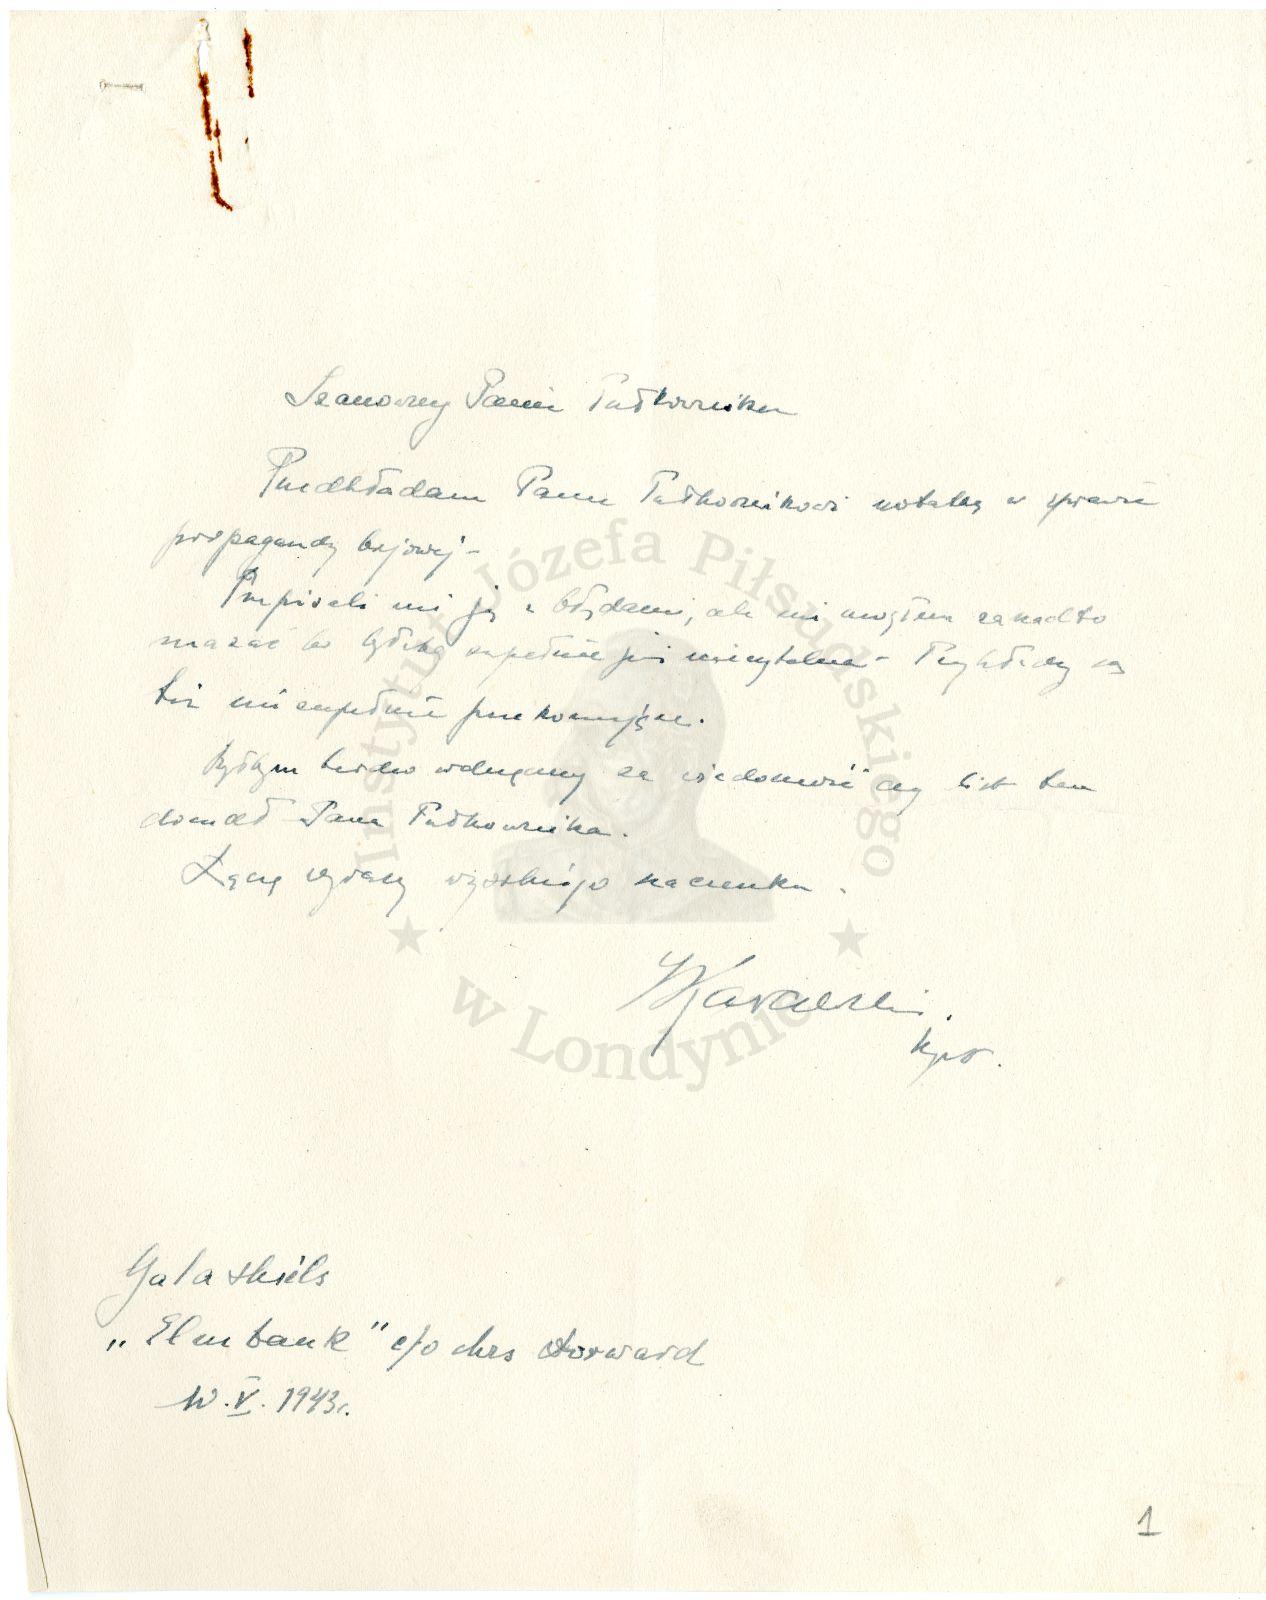 Szanowny Panie Pułkowniku
Przedkładam Panu Pułkownikowi notatkę w sprawie
propagandy
Przepisali mi ją z błędami, ale nie mogłem zanadto
mazać bo byłaby zupełnie już nieczytelna - Przykłady są
też nie zupełnie przekonujące.
Byłbym bardzo wdzięczny za wiadomość czy list ten
doszedł Pana Pułkownika.
Łączę wyrazy wysokiego szacunku.
kpt.
Galashiels
„Elmbank" c/o Mrs Dorward
10.V.1943r.
1
Instytut Józefa Piłsudskiego
w Londynie